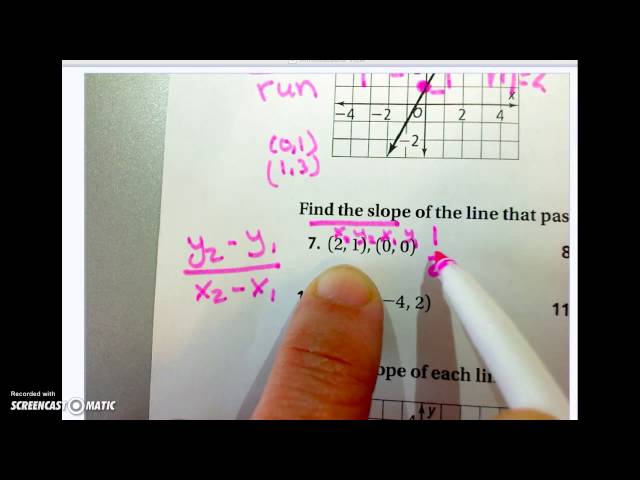 run
x
-4 -2 O 2 4
-2
(0,1)
(1,3)
Find the slope of the line that pas
x₂ y₂ x₁ y₁
y₂ - y₁
x₂ - x₁
7. (2, 1), (0, 0)
1
8
-4, 2)
11
ope of each lin
y
Recorded with
SCREENCAST O MATIC